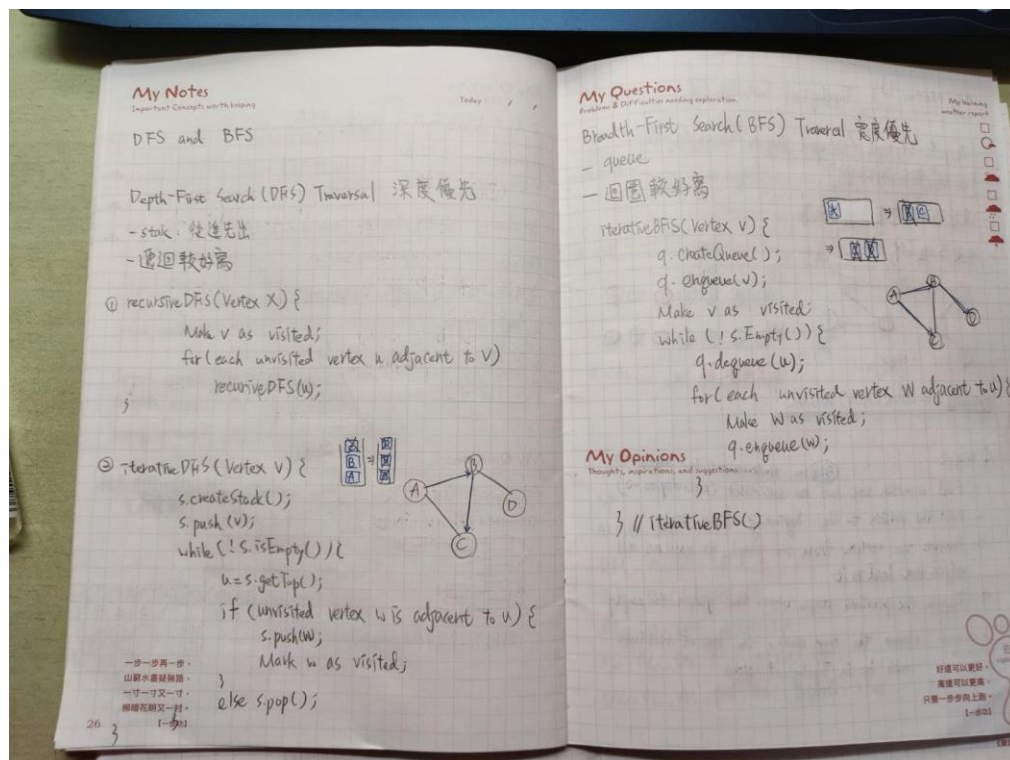 My Notes
Important Concepts worth keeping
Today , ,
DFS and BFS
Depth-First Search (DFS) Traversal 深度優先
- stak: 後進先出
- 遞迴較好寫
① recursiveDFS(Vertex X) {
Make v as visited;
for(each unvisited vertex u adjacent to V)
recuriveDFS(u);
}
② iterativeDFS(Vertex V) {
s.createStack();
s.push (v);
while (! S.isEmpty()){
u = s.getTop();
if (unvisited vertex w is adjacent to u) {
s.push(w);
Mark w as visited;
}
else s.pop();
}
}
B
A
A
B
C
D
一步一步再一步，
山窮水盡疑無路，
一寸一寸又一寸，
柳暗花明又一村。
【一步功】
26
My Questions
Problems & Difficulties needing exploration
My learning
weather report
Breadth-First Search (BFS) Traveral 寬度優先
- queue
- 回圈較好寫
iterativeBFS(Vertex V) {
q.createQueue();
q.enqueue(v);
Make v as visited;
while (! s.Empty()) {
q.dequeue (u);
for( each unvisited vertex W adjacent to u) {
Make W as visited;
q.enqueue(w);
}
} // iterativeBFS()
A
B
C
D
My Opinions
Thoughts, inspirations, and suggestions
好還可以更好，
高還可以更高，
只要一步步向上跑。
【一步功】